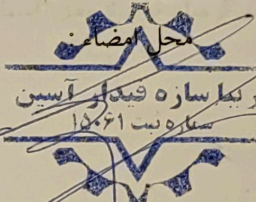 محل امضاء:
زیبا سازه قیدار آسین
شماره ثبت ۱۵۰۶۱